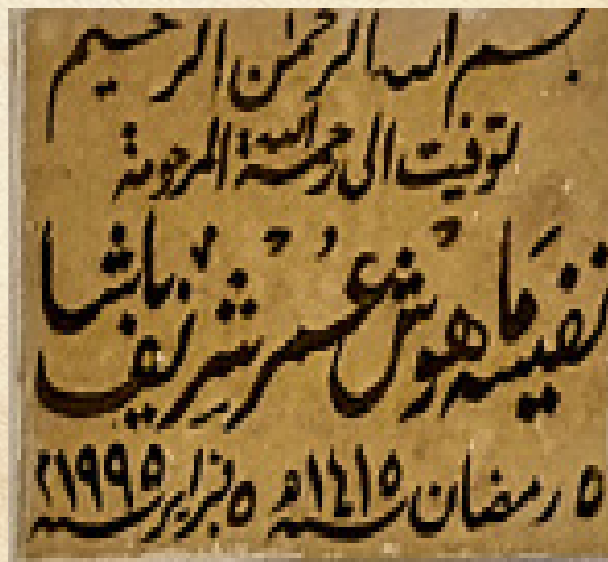 بسم الله الرحمن الرحيم
توفيت الى رحمة الله المرحومة
نفيسه ماهوش عمر شريف باشا
٥ رمضان سنه ١٤١٥ھ ٥ فبراير سنه ١٩٩٥م